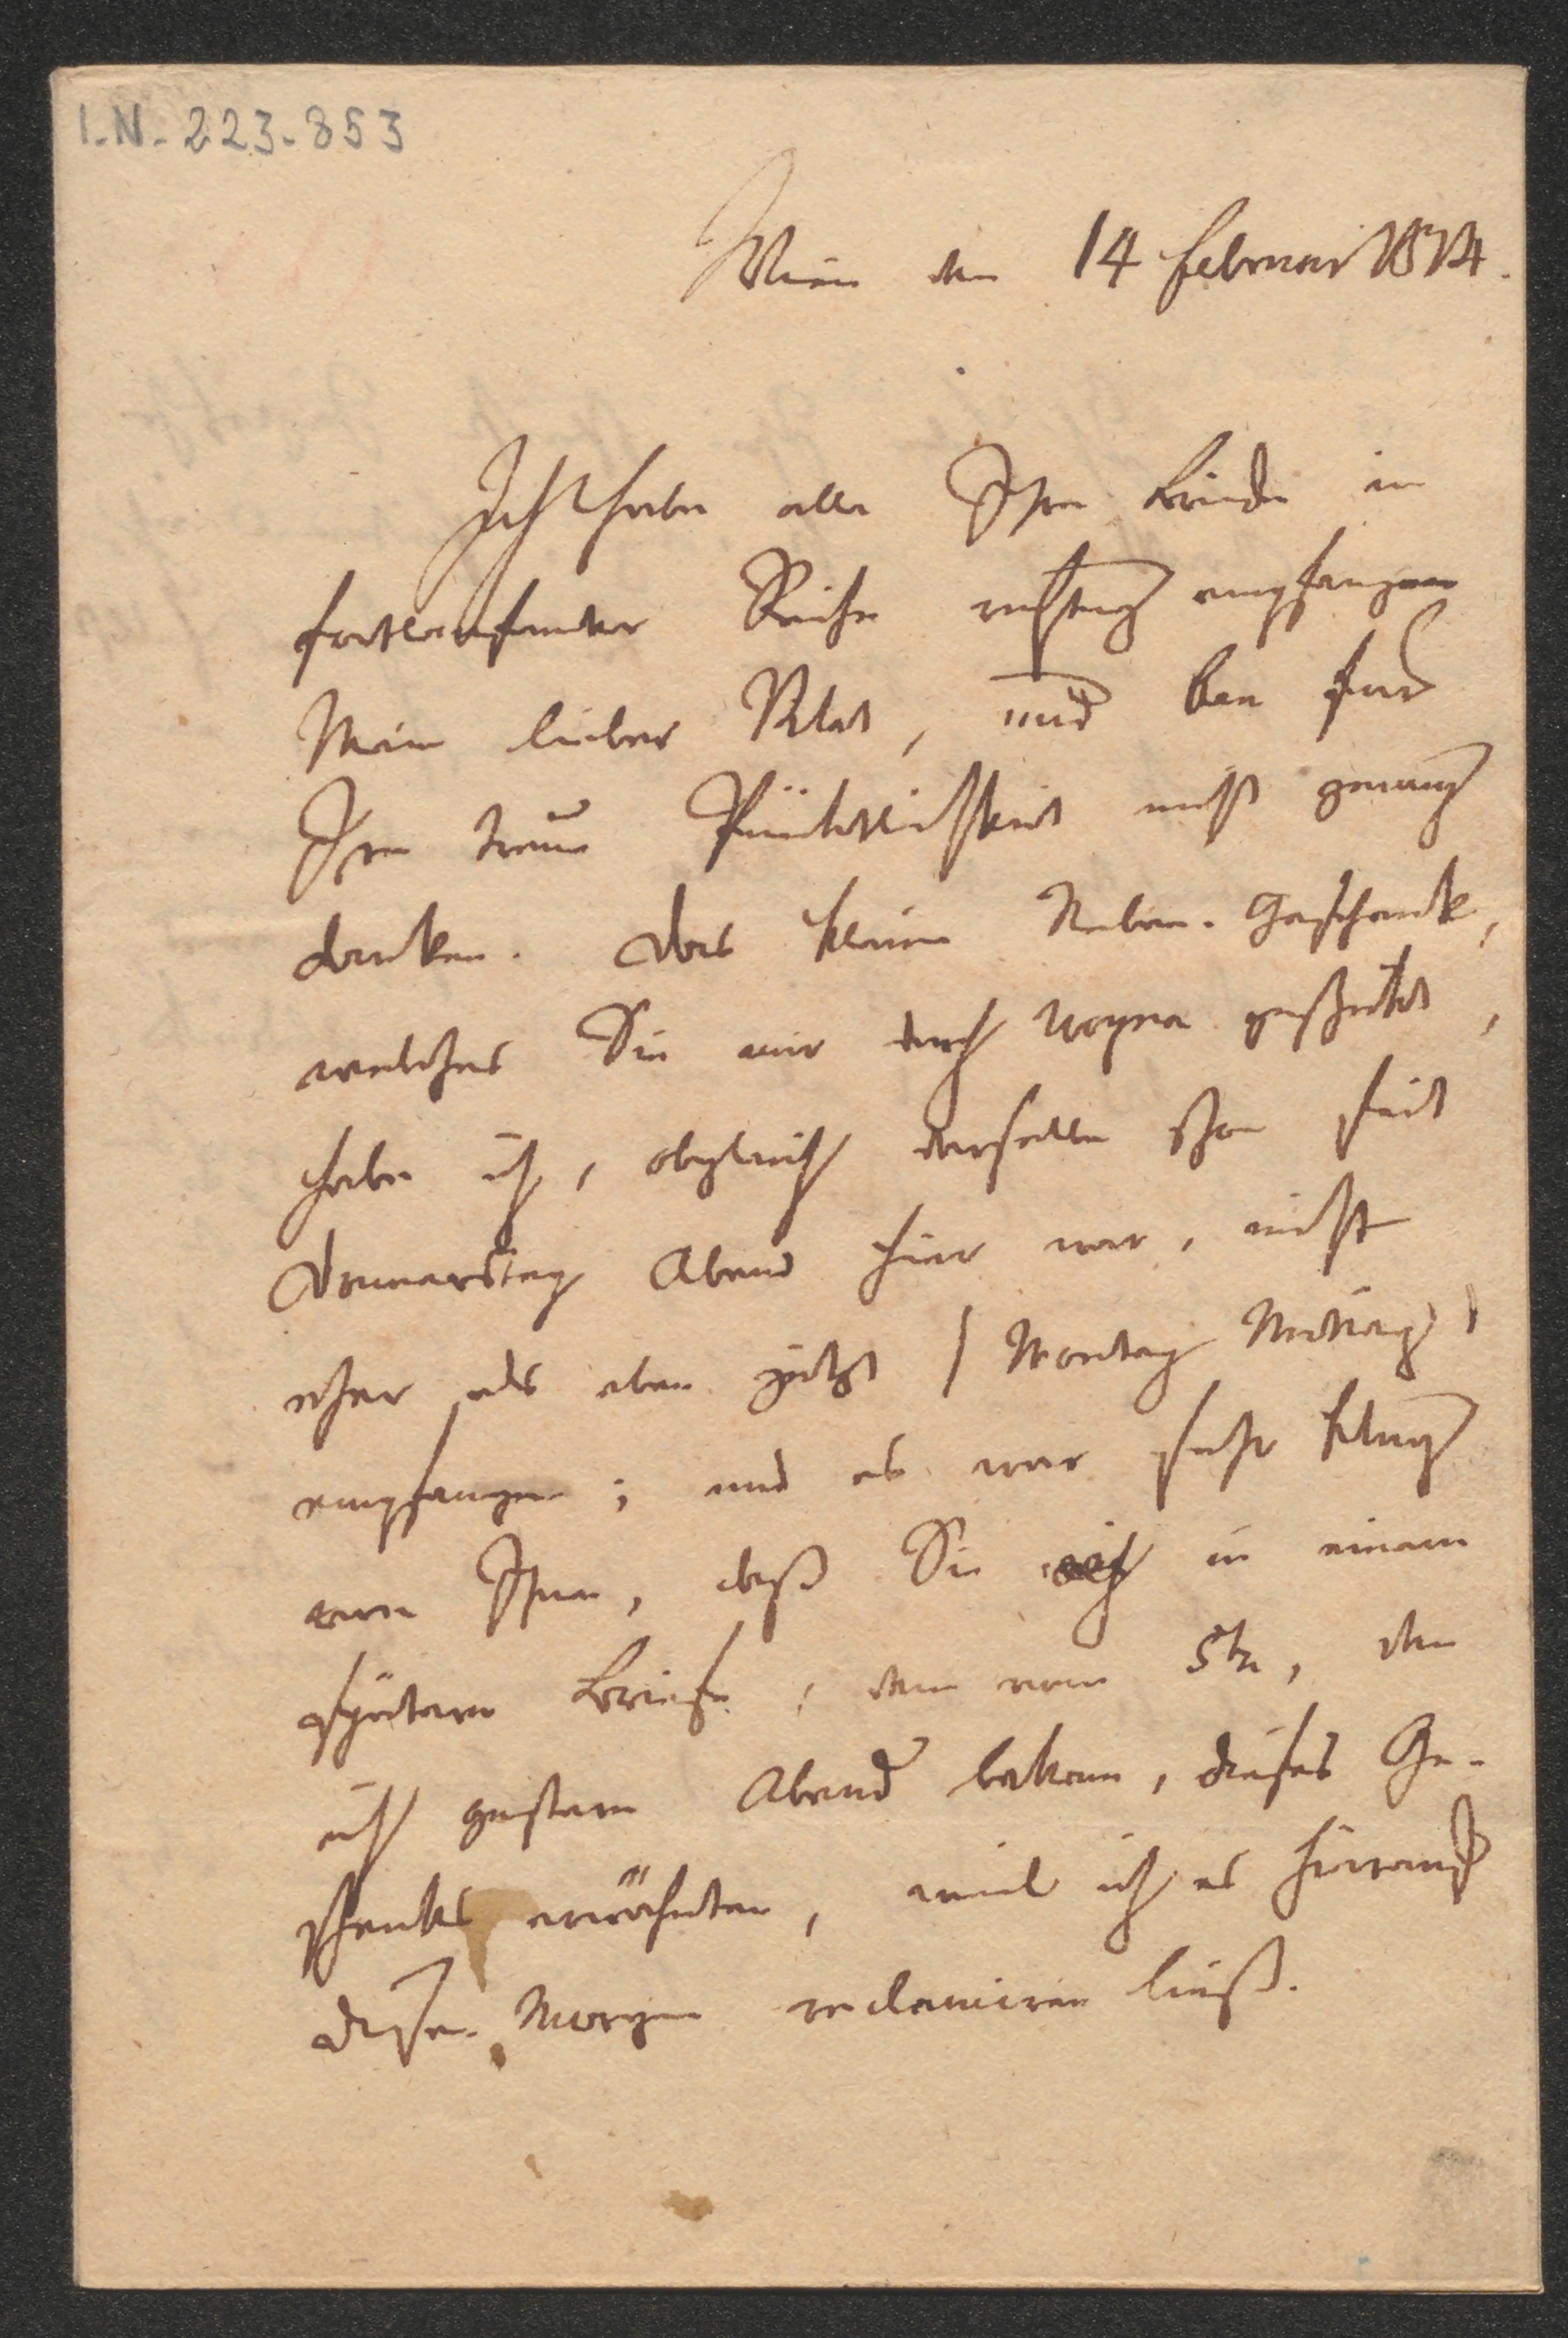 I.N. 223.853
Wien den 14 Februar 1814.
Ich habe alle Ihre Briefe in
fortlaufender Reihe richtig empfangen
Mein lieber Pilat, und kan für
Ihre treue Pünktlichkeit nicht genung
danken. Das kleine Neben-Geschenk,
welches Sie mir durch Woyna geschickt,
habe ich, obgleich derselbe schon seit
Donnerstag Abend hier war, nicht
eher als eben jetzt (Montag Mittag)
empfangen; und es war sehr klug
von Ihnen, daß Sie in einem
spätern Briefe, dem vom 5tn, den
ich gestern Abend bekam, dieses Ge-
schenks erwähnten, weil ich es hierauf
diesen Morgen reclamiren ließ.